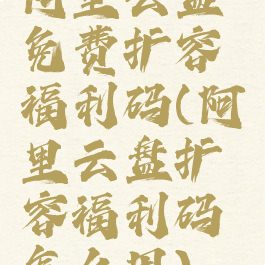 阿里云盘
免费扩容
福利码(阿
里云盘扩
容福利码
怎么用)